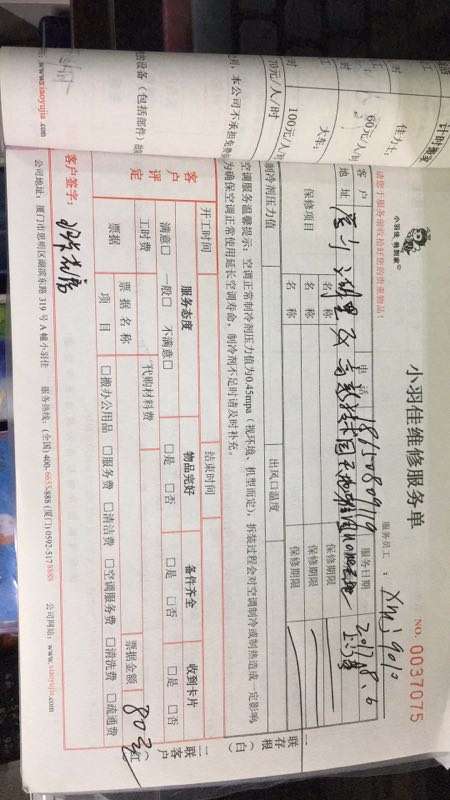 小羽佳维修服务单
NO. 0037075
小羽佳 帮到家
服务员工：Xmj9010
请您于服务前收拾好您的贵重物品！
客户
电话
服务日期 2017.8.6
地址
保修项目
名称
保修期限
名称
保修期限
名称
保修期限
制冷剂压力值
出风口温度
空调服务温馨提示：空调正常制冷剂压力值为0.45mpa（视环境、机型而定），拆装过程会对空调制冷或制热造成一定影响
为确保空调正常使用延长空调寿命，制冷剂不足时请及时补充。
开工时间
结束时间
客户评定
服务态度
物品完好
备件齐全
收到卡片
满意□ 一般□ 不满意□
□是 □否
□是 □否
□是 □否
工时费
代购材料费
票据金额 80元
票据
票据名称
项目
□搬办公用品 □服务费 □清洁费 □空调服务费 □清洗费 □疏通费
客户签字：
公司地址：厦门市思明区湖滨东路 319 号 A 幢小羽佳
服务热线：(全国) 400-6633-888 (厦门) 0592-5178888
公司网站：www.xiaoyujia.com
一联存根（白）
二联客户（红）
计时
佳小工：
60元/人/时
大工：
100元/人/时
70元/人/时
本公司不承担
设备（包括部件）
www.xiaoyujia.com